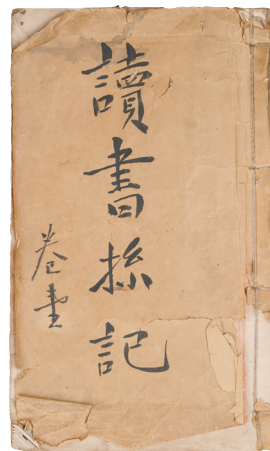 讀書孫記
卷壹